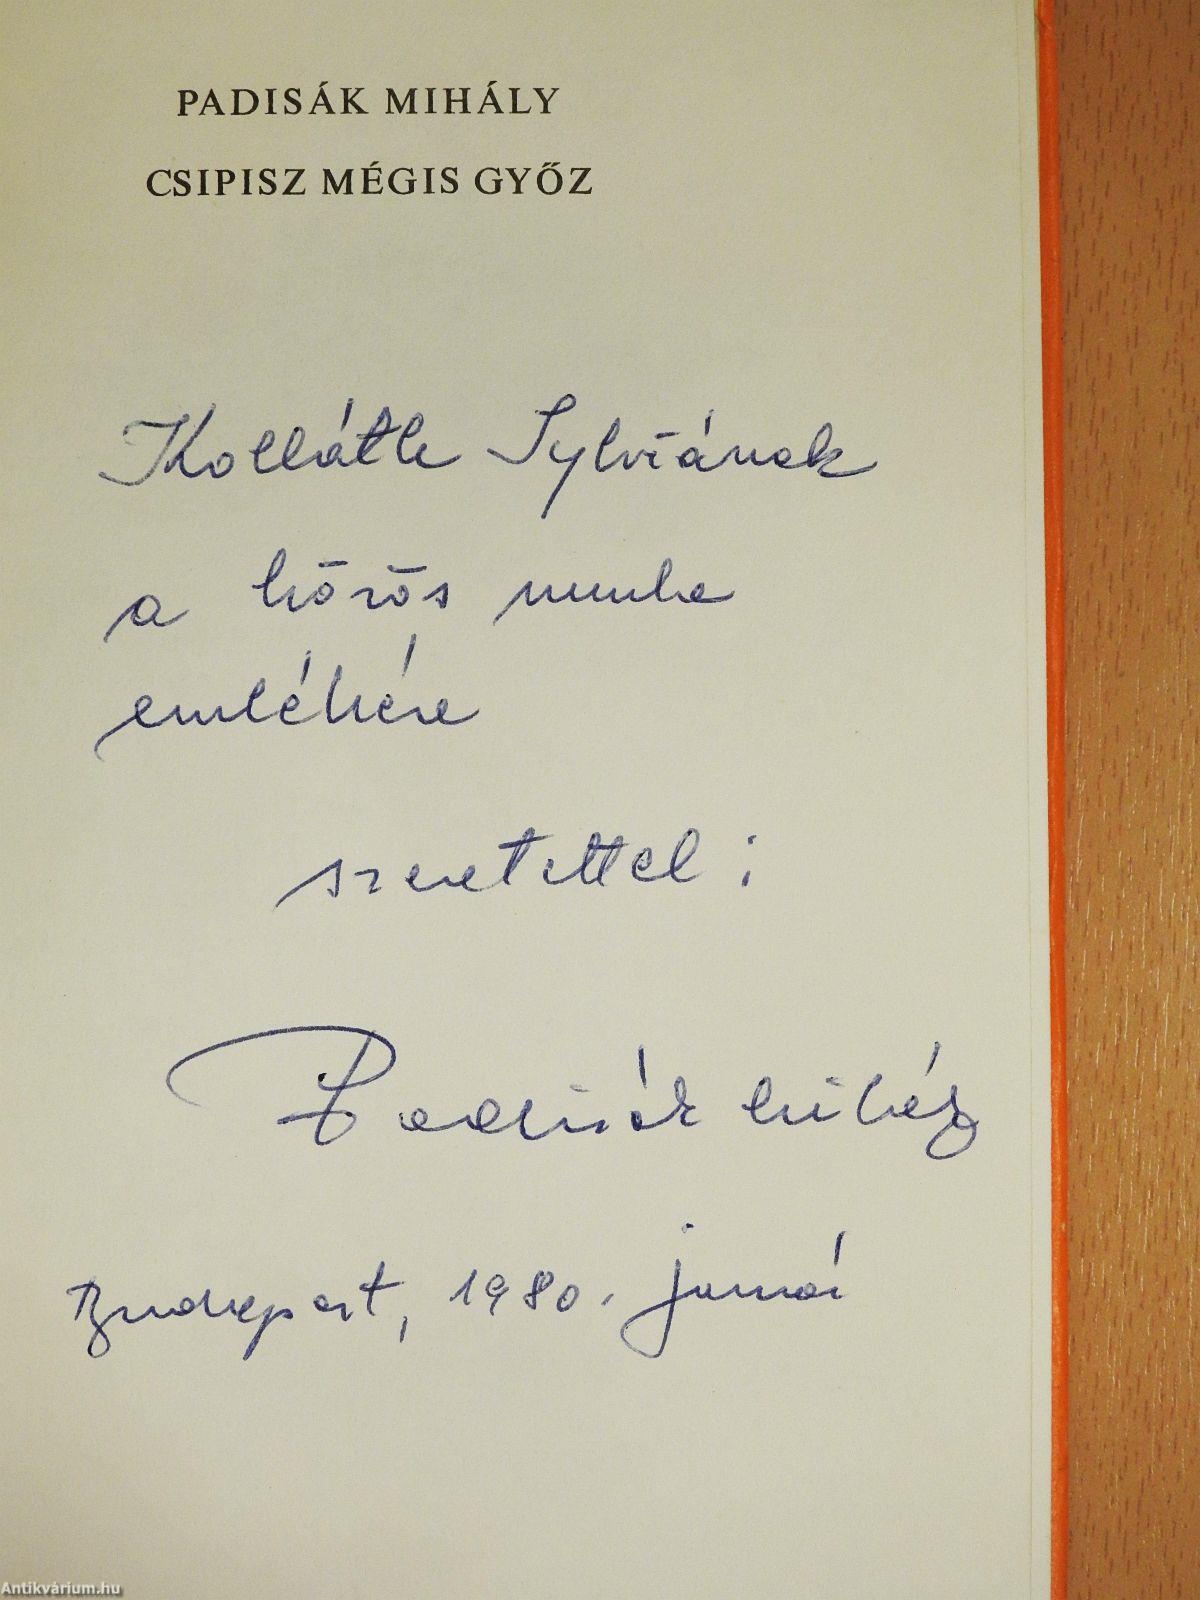 PADISÁK MIHÁLY
CSIPISZ MÉGIS GYŐZ
Kolláth Sylviának
a közös munka
emlékére
szeretettel:
Padisák Mihály
Budapest, 1980. június
Antikvárium.hu